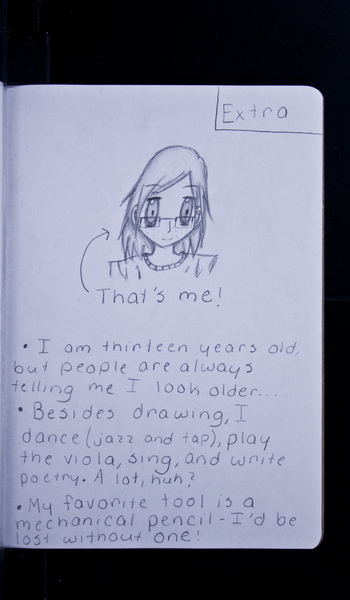 Extra
That's me!
• I am thirteen years old,
but people are always
telling me I look older...
• Besides drawing, I
dance (jazz and tap), play
the viola, sing, and write
poetry. A lot, huh?
• My favorite tool is a
mechanical pencil - I'd be
lost without one!